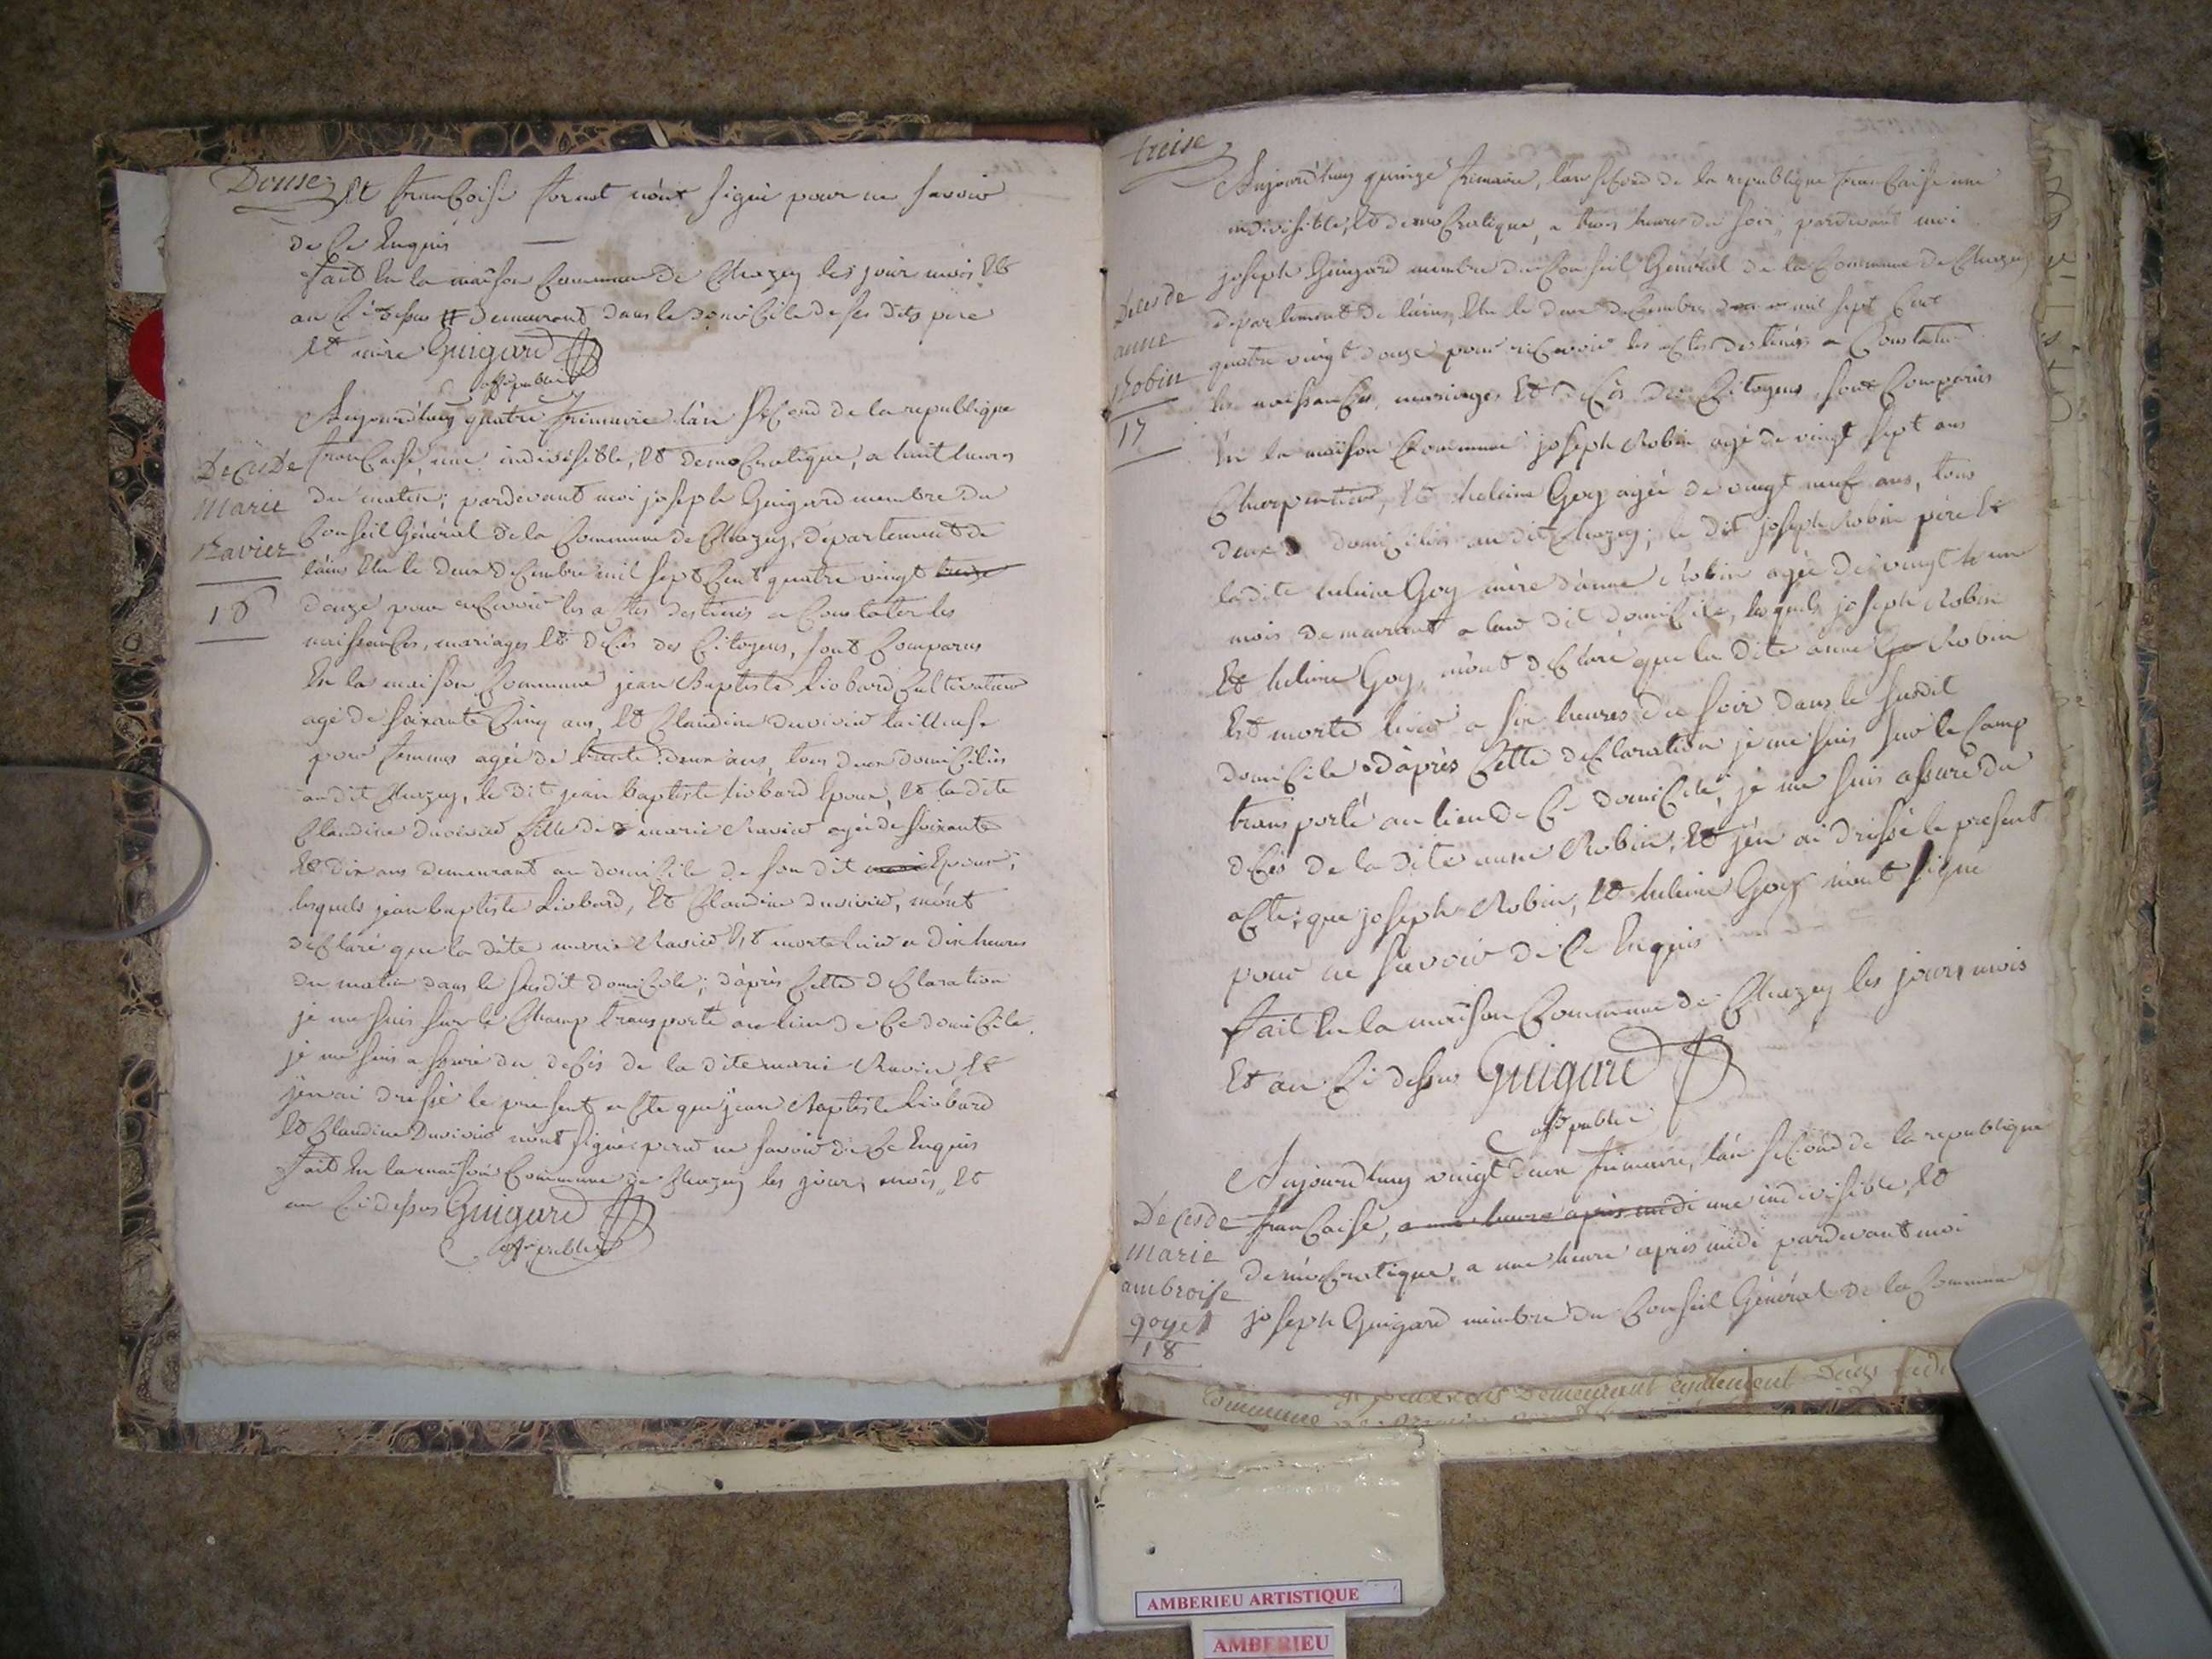 Douse
Et françoise fornet n'ont signé pour ne savoir
de ce Enquis
fait En la maison Commune de Chazey les jour mois Et
an Ci dessus # demeurant dans le domicile de ses dits pere
Et mère Guigard
offr public
Aujourd'huy quatre frimaire l'an second de la republique
francaise, une indivisible, Et democratique, a huit heures
du matin; pardevant moi joseph Guigard membre du
Conseil Général de la Commune de Chazey, departement de
l'ain Elu le deux decembre mil sept Cent quatre vingt treize
douze pour recevoir les actes destinés a Constater les
naissances, mariages Et decès des Citoyens, sont Comparus
En la maison Commune jean Baptiste Liobard Cultivateur
agé de soixante Cinq ans, Et Claudine duvivier tailleuse
pour femmes agée de trente deux ans, tous deux domiciliés
au dit Chazey, le dit jean baptiste Liobard Epoux, Et la dite
Claudine duvivier fille de marie Ravier agée de soixante
Et dix ans demeurant au domicile de son dit mari Epoux;
lesquels jean baptiste Liobard, Et Claudine duvivier, m'ont
declaré que la dite marie Ravier Est morte hier a dix heures
du matin dans le susdit domicile; d'après Cette declaration
je me suis sur le Champ transporté au lieu de Ce domicile,
je me suis assuré du decès de la dite marie Ravier, Et
j'en ai dressé le present acte que jean Baptiste Liobard
Et Claudine Duvivier n'ont signé pour ne savoir de Ce Enquis
fait En la maison Commune de Chazey les jour, mois, Et
an Ci dessus Guigard
offr public
Deces De
Marie
Ravier
16
treise
Aujourd'huy quinze frimaire, l'an second de la republique francaise une
indivisible, Et democratique, a trois heures du soir, pardevant moi
joseph Guigard membre du Conseil Général de la Commune de Chazey
departement de l'ain, Elu le deux decembre mil sept Cent
quatre vingt douze pour recevoir les actes destinés a Constater
les naissances, mariages Et decès des Citoyens, sont Comparus
En la maison Commune joseph Robin agé de vingt sept ans
Charpentier, Et heleine Goy agée de vingt neuf ans, tous
deux domiciliés au dit Chazey; le dit joseph Robin père Et
la dite heleine Goy mère d'anne Robin agée de vingt Et un
mois demeurant a leur dit domicile, lesquels joseph Robin
Et heleine Goy, m'ont declaré que la dite anne Robin
Est morte hier a six heures du soir dans le susdit
domicile d'après Cette declaration je me suis sur le Camp
transporté au lieu de Ce domicile, je me suis assuré du
decès de la dite anne Robin, Et j'en ai dressé le present
acte; que joseph Robin, Et heleine Goy n'ont signe
pour ne savoir de Ce Enquis
fait En la maison Commune de Chazey les jour, mois
Et an Ci dessus Guigard
offr public
Deces de
anne
Robin
17
Aujourdhuy vingt deux frimaire, l'an second de la republique
francaise, a une heure après midi une indivisible, Et
democratique, a une heure après midi pardevant moi
joseph Guigard membre du Conseil Général de la Commune
Deces de
Marie
ambroise
goyet
18
demeurant egalement
Commune
AMBERIEU ARTISTIQUE
AMBERIEU